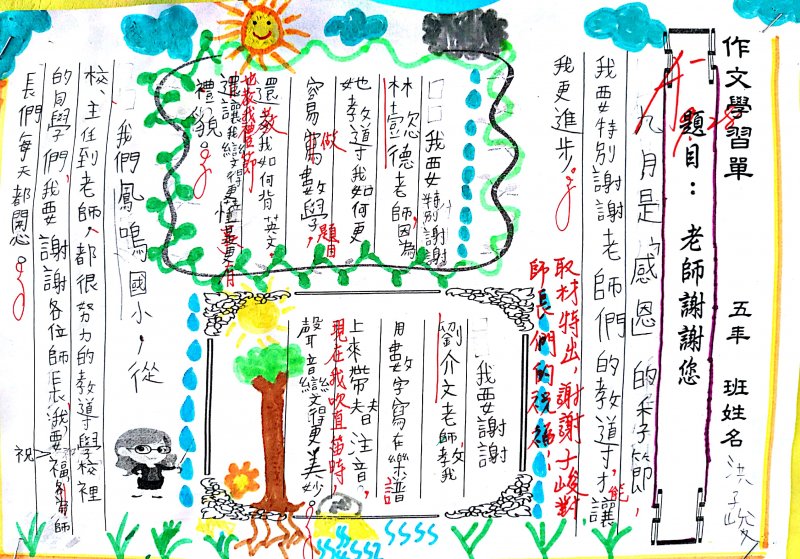 作文學習單 五年 班姓名 洪
題目：老師謝謝您
九月是「感恩」的季節，
我要特別謝謝老師們的教導才能讓
我更進步。
取材特出，謝謝士峻對
師長們的祝福！
□□我要特別謝謝
林 德老師，因為
她教導我如何更
容易做數學題，
還教我如何背英文，
也教我禮節
還讓我變得更懂
禮貌。
□□我要謝謝
劉介文老師，教我
用數字寫在樂譜
上來帶替注音，
現在我吹直笛時，
聲音變得更美妙。
□□我們鳳鳴國小，從
校、主任到老師，都很努力的教導學校裡
的同學們，我要謝謝各位師長，我要祝福各位師
長們每天都開心。